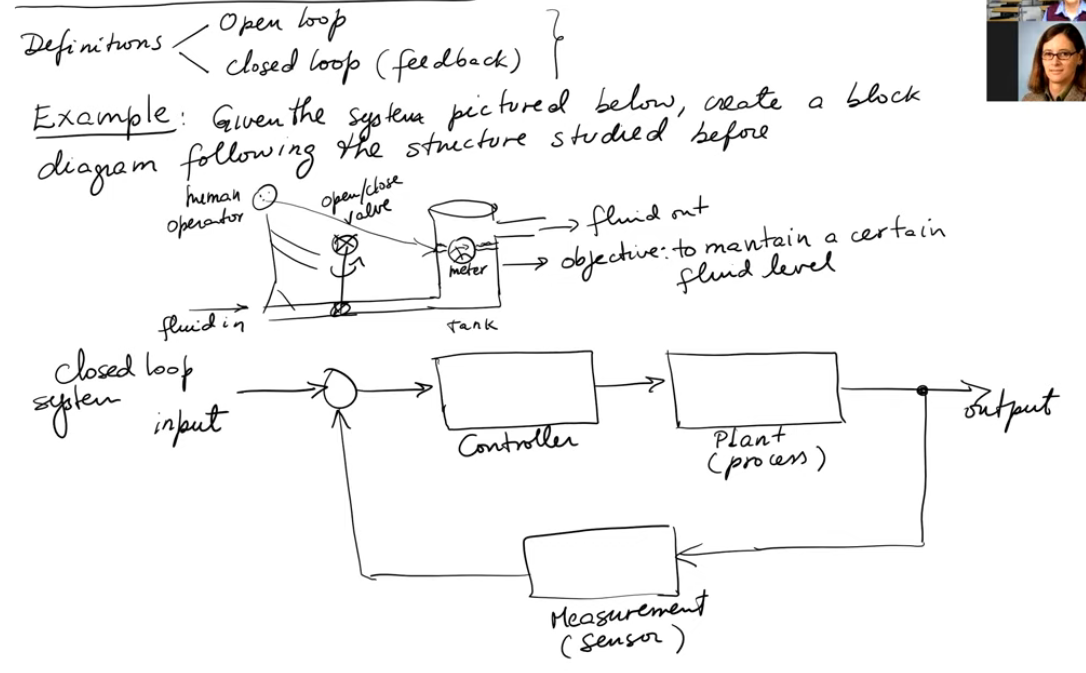 Definitions
Open loop
closed loop (feedback)
Example: Given the system pictured below, create a block
diagram following the structure studied before
human
operator
open/close
valve
meter
fluid out
objective: to mantain a certain
fluid level
fluid in
tank
closed loop
system
input
Controller
Plant
(process)
output
Measurement
(sensor)